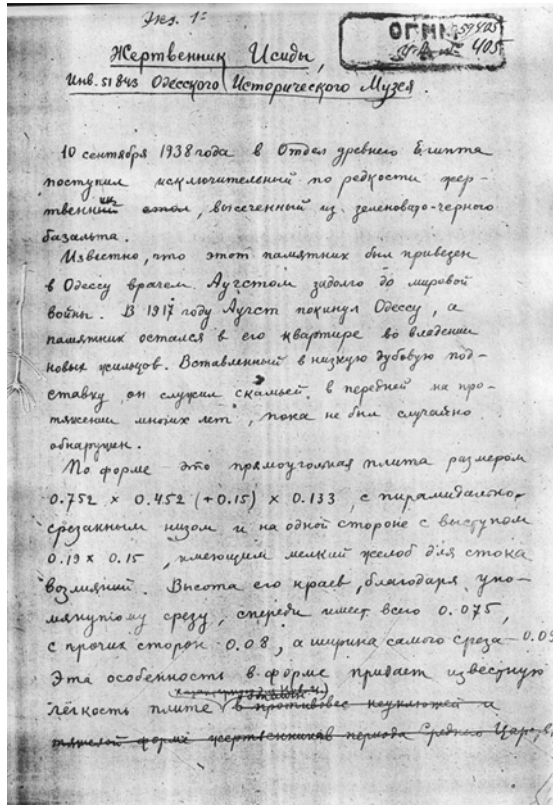 Экз. 1
ОГИМ
405
Жертвенник Исиды,
Инв. 51843 Одесского Исторического Музея.
10 сентября 1938 года в Отдел древнего Египта
поступил исключительный по редкости жер-
твенник стол, высеченный из зеленовато-черного
базальта.
Известно, что этот памятник был привезен
в Одессу врачем Аугстом задолго до мировой
войны. В 1917 году Аугст покинул Одессу, а
памятник остался в его квартире во владении
новых жильцов. Вставленный в низкую дубовую под-
ставку он служил скамьей в передней на про-
тяжении многих лет, пока не был случайно
обнаружен.
По форме это прямоугольная плита размером
0.752 × 0.452 (+0.15) × 0.133, с пирамидально
срезанным низом и на одной стороне с выступом
0.19 × 0.15, имеющим мелкий желоб для стока
возлияний. Высота его краев, благодаря упо-
мянутому срезу, спереди имеет всего 0.075,
с прочих сторон 0.08, а ширина самого среза -
Эта особенность в форме придает известную
лёгкость плите в противовес неуклюжей и
тяжелой форме жертвенников периода Среднего